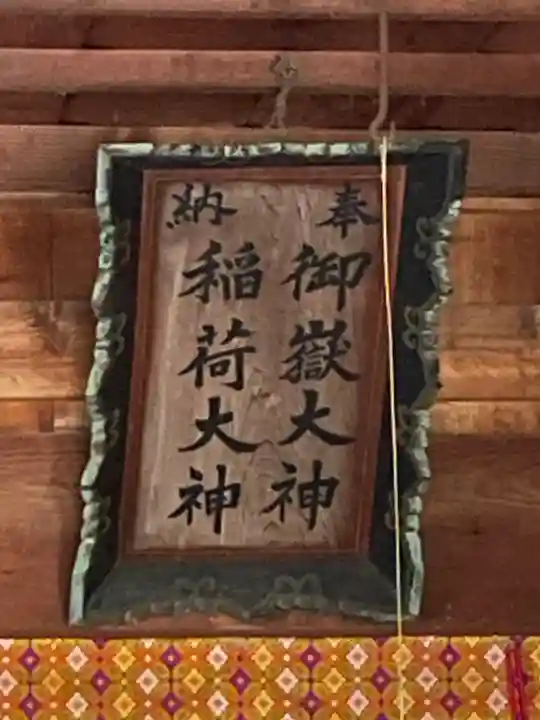 奉納
御嶽大神
稲荷大神